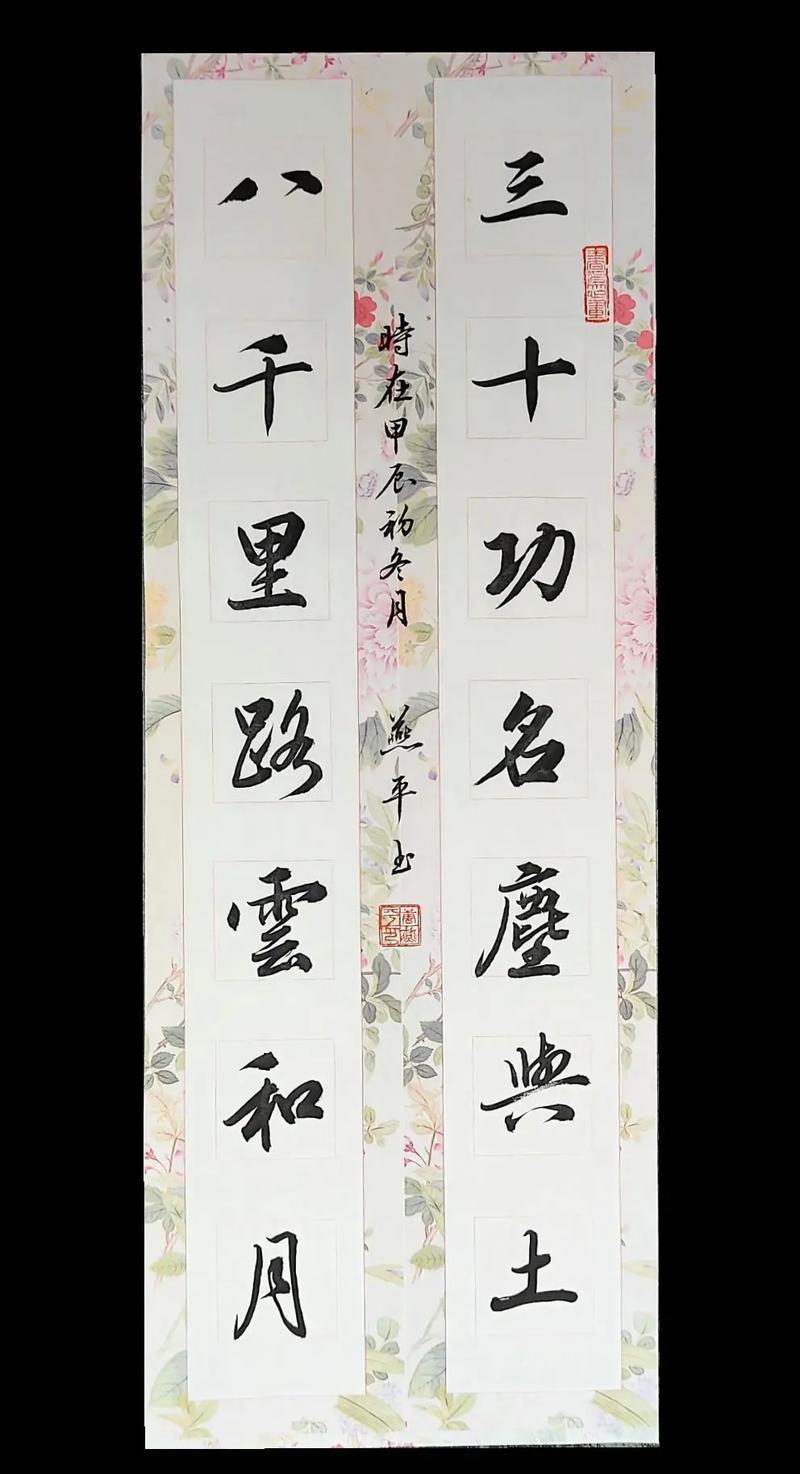 三十功名塵與土
八千里路雲和月
時在甲辰初冬月
燕平书